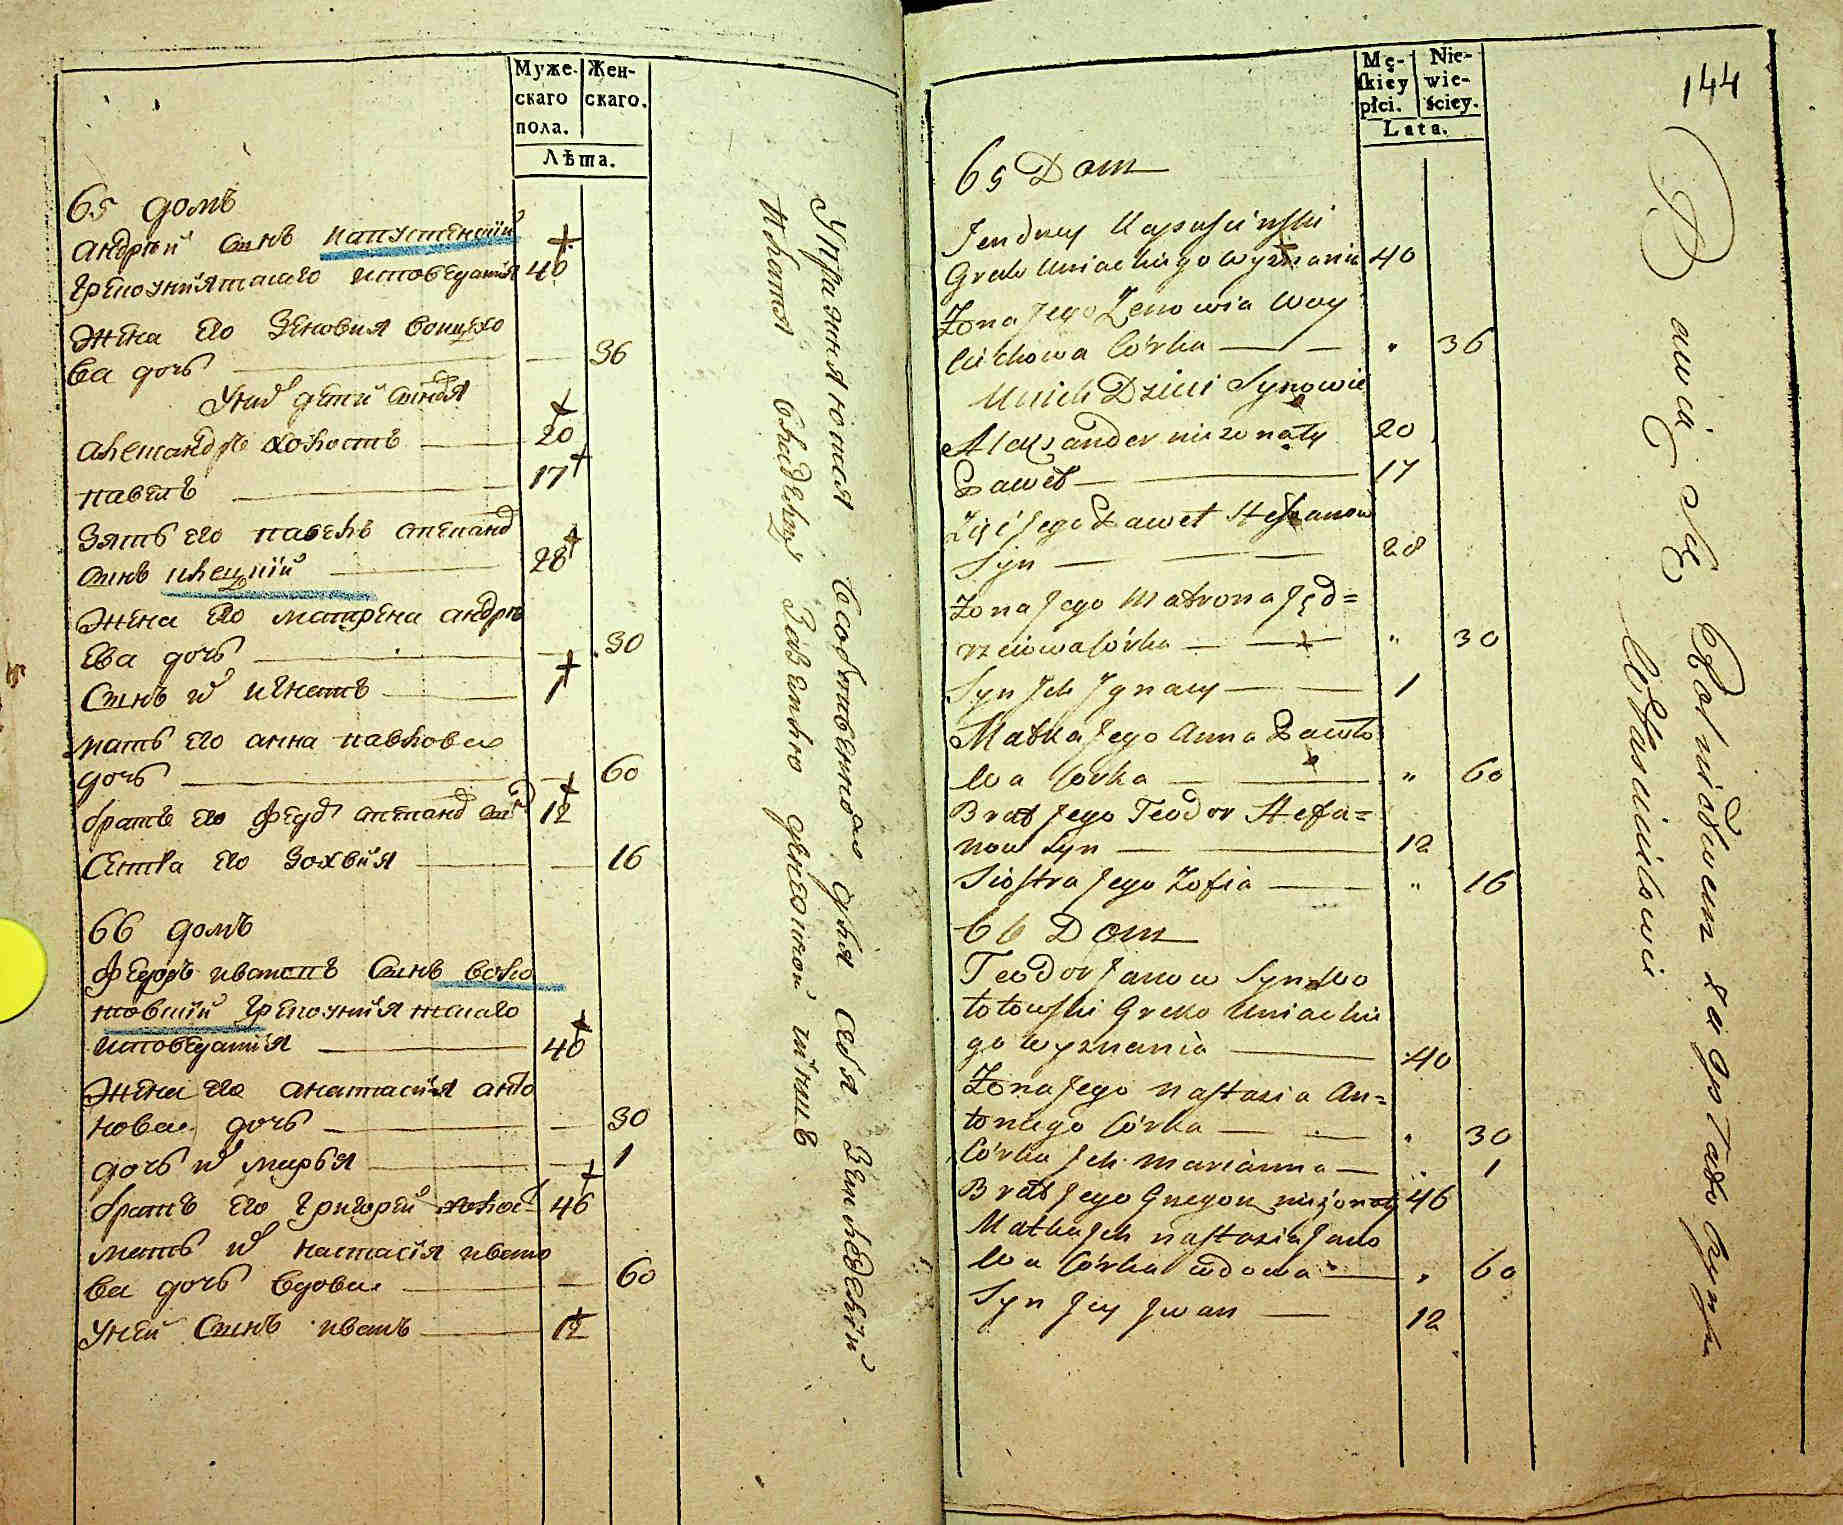 Муже-
скаго
пола.
Жен-
скаго.
Лѣта.
65 домъ
андрей сынъ капустинскій
грекоуніятскаго исповеданія 40
жена его зеновия войцехо
ва дочь 36
У них детей синовя
александръ холостъ 20
павелъ 17
Зять его павелъ степанов
сынъ клецкий 28
жена его матрена андре
ева дочь 30
Сынъ их игнатъ 1
мать его анна павлова
дочь 60
братъ его федор степанов сын 12
Сестра его зофия 16
66 домъ
федоръ ивановъ сынъ воло
товский грекоуниятскаго
исповедания 40
жена его анастасия анто
нова дочь 30
дочь их марья 1
братъ его григорей холост 46
мать их настасія ивано
ва дочь вдова 60
У ней сынъ иванъ 12
Упражняются собственною для себя
платя владельцу денежной чиншъ
144
Mę-
skiey
płci.
Nie-
wie-
ściey.
Lata.
65 Dom
Jendrzey Kapuściński
Greko Uniackiego wyznania 40
Żona Jego Zenowia Woy
ciechowa Córka " 36
U nich Dzieci Synowie
Alexander nieżonaty 20
Paweł 17
Zięć Jego Paweł Stefanow
Syn 28
Żona Jego Matrona Jęd=
rzeiowa Córka " 30
Syn Ich Ignacy 1
Matka Jego Anna Pawło
wa Córka " 60
Brat Jego Teodor Stefa=
now Syn 12
Siostra Jego Zofia " 16
66 Dom
Teodor Janow Syn Wo
łotowski Greko Uniackie
go wyznania 40
Żona Jego Nastazia An=
toniego Córka " 30
Córka Ich Marianna " 1
Brat Jego Gregor nieżonaty 46
Matka Ich Nastazia Jano
wa Córka wdowa " 60
Syn Jey Iwan 12
Bawią się Rolnictwem